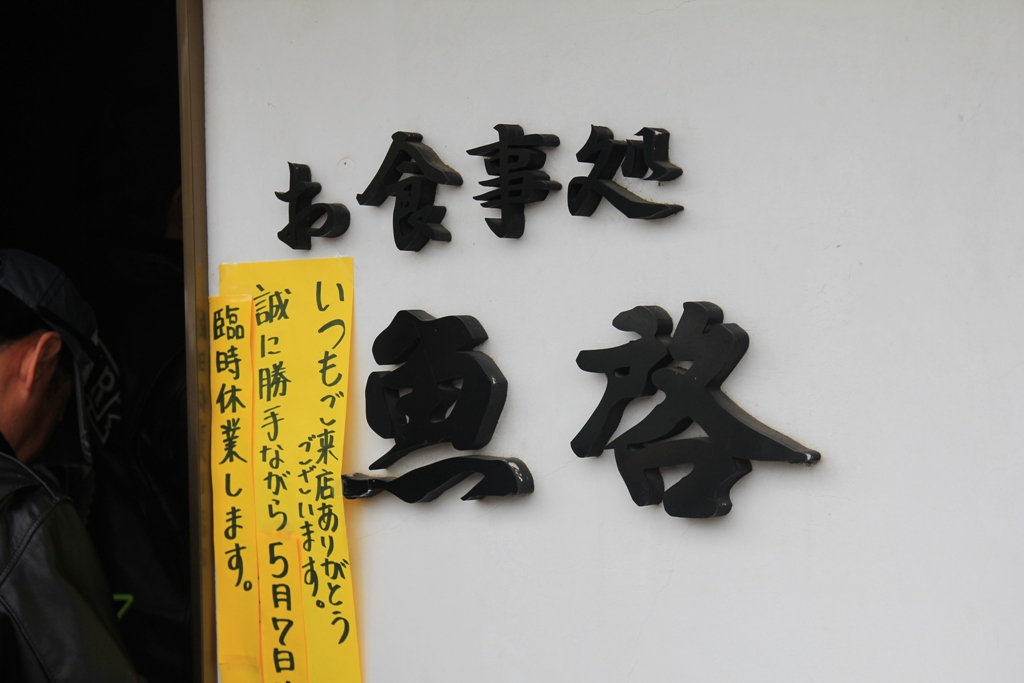 お食事処
魚啓
いつもご来店ありがとう
ございます。
誠に勝手ながら5月7日
臨時休業します。